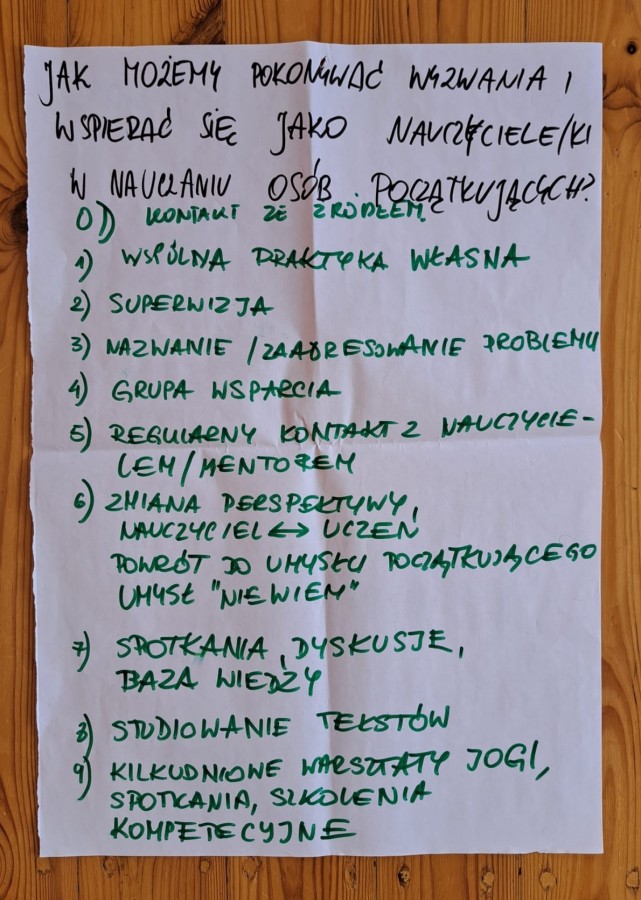 JAK MOŻEMY POKONYWAĆ WYZWANIA I
WSPIERAĆ SIĘ JAKO NAUCZYCIELE/KI
W NAUCZANIU OSÓB POCZĄTKUJĄCYCH?
0) KONTAKT ZE ŹRÓDŁEM
1) WSPÓLNA PRAKTYKA WŁASNA
2) SUPERWIZJA
3) NAZWANIE / ZAADRESOWANIE PROBLEMU
4) GRUPA WSPARCIA
5) REGULARNY KONTAKT Z NAUCZYCIE-
LEM/MENTOREM
6) ZMIANA PERSPEKTYWY,
NAUCZYCIEL ↔ UCZEŃ
POWRÓT DO UMYSŁU POCZĄTKUJĄCEGO
UMYSŁ "NIE WIEM"
7) SPOTKANIA, DYSKUSJE,
BAZA WIEDZY
8) STUDIOWANIE TEKSTÓW
9) KILKUDNIOWE WARSZTATY JOGI,
SPOTKANIA, SZKOLENIA
KOMPETECYJNE